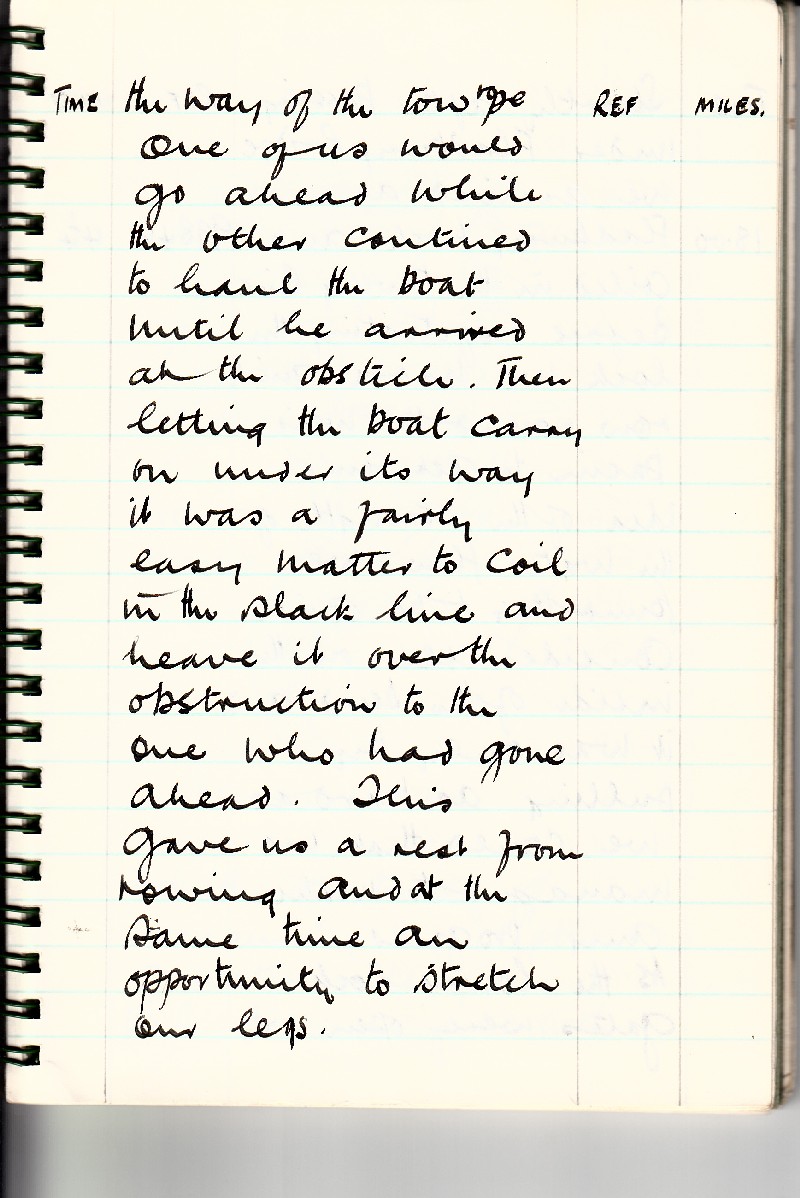 TIME the way of the tow rope REF MILES.
One of us would
go ahead while
the other contined
to haul the boat
until he arrived
at the obsticle. Then
letting the boat carry
on under its way
it was a fairly
easy matter to coil
in the slack line and
heave it over the
obstruction to the
one who had gone
ahead. This
gave us a rest from
rowing and at the
same time an
opportunity to stretch
our legs.